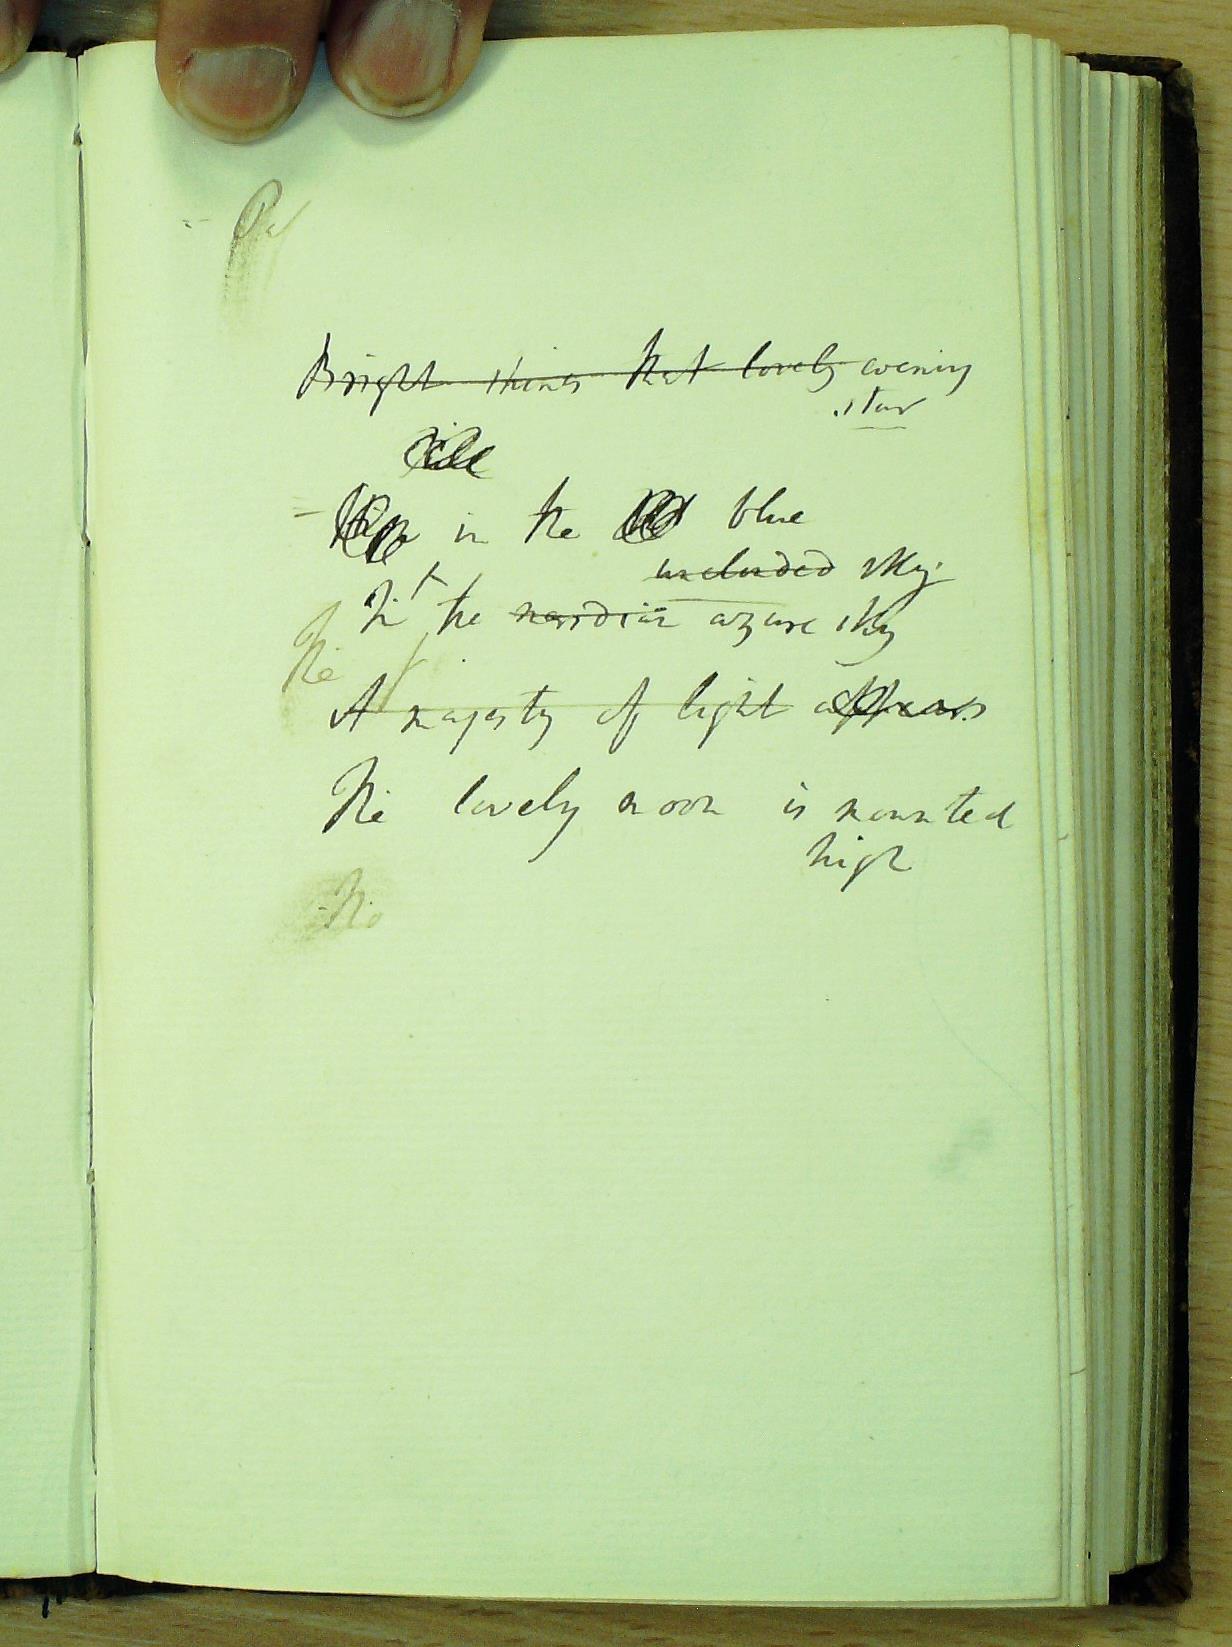 Bright shines that lovely evening
star
in the blue
unclouded sky.
In the azure sky
The
A majesty of light appears
The lovely moon is mounted
high
The